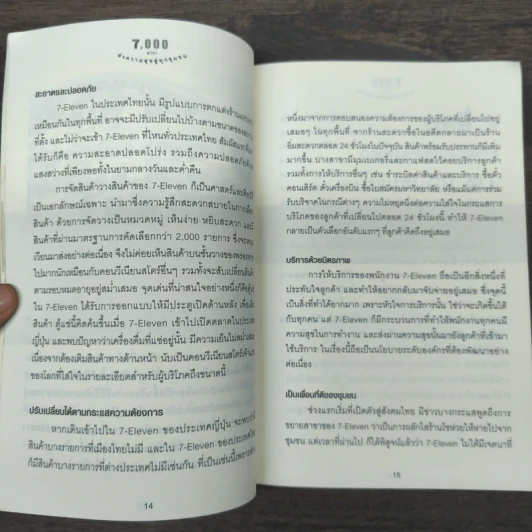 7,000
สาขา
ส่งความสุขสู่ทุกชุมชน
สะอาดและปลอดภัย
7-Eleven ในประเทศไทยนั้น มีรูปแบบการตกแต่งร้าน
เหมือนกันในทุกพื้นที่ อาจจะมีปรับเปลี่ยนไปบ้างตามขนาดของ
ที่ตั้ง และไม่ว่าจะเข้า 7-Eleven ที่ไหนทั่วประเทศไทย สัมผัสแรกที่
ได้รับก็คือ ความสะอาดปลอดโปร่ง รวมถึงความปลอดภัยด้วย
แสงสว่างที่เพียงพอทั้งในยามกลางวันและค่ำคืน
การจัดสินค้าวางสินค้าของ 7-Eleven ก็เป็นศาสตร์และศิลป์
เป็นเอกลักษณ์เฉพาะ นำมาซึ่งความรู้สึกสะดวกสบายในการ
สินค้า ด้วยการจัดวางเป็นหมวดหมู่ เห็นง่าย หยิบสะดวก และมี
สินค้าที่ผ่านมาตรฐานการคัดเลือกกว่า 2,000 รายการ ซึ่งจะหมุน
เวียนมาส่งอย่างต่อเนื่อง จึงไม่ค่อยเห็นสินค้าบนชั้นวางของพร่อง
ไปมากนักเหมือนกับคอนวีเนียนสโตร์อื่นๆ รวมทั้งจะสับเปลี่ยนสินค้า
ตามรอบหมดอายุอยู่สม่ำเสมอ จุดเด่นที่น่าสนใจอย่างหนึ่งก็คือตู้
ใน 7-Eleven ได้รับการออกแบบให้มีประตูเปิดด้านหลัง เพื่อเติม
สินค้า ตู้แช่นี้คิดค้นขึ้นเมื่อ 7-Eleven เข้าไปเปิดตลาดในประเทศ
ญี่ปุ่น และพบปัญหาว่าเครื่องดื่มที่แช่อยู่นั้น มีความเย็นไม่สม่ำเสมอ
เนื่องจากต้องเติมสินค้าทางด้านหน้า นับเป็นคอนวีเนียนสโตร์เจ้าแรก
ของโลกที่ใส่ใจในรายละเอียดสำหรับผู้บริโภคถึงขนาดนี้
ปรับเปลี่ยนได้ตามกระแสความต้องการ
หากเดินเข้าไปใน 7-Eleven ของประเทศญี่ปุ่น จะพบว่า
สินค้าบางรายการที่เมืองไทยไม่มี และใน 7-Eleven ของประเทศไทย
ก็มีสินค้าบางรายการที่ต่างประเทศไม่มีเช่นกัน ที่เป็นเช่นนี้เพราะ
14
หนึ่งมาจากการตอบสนองความต้องการของผู้บริโภคที่เปลี่ยนไปอยู่
เสมอๆ ในทุกพื้นที่ จากร้านสะดวกซื้อในอดีตกลายมาเป็นร้าน
อิ่มสะดวกตลอด 24 ชั่วโมงในปัจจุบัน สินค้าพร้อมรับประทานก็มีเพิ่ม
มากขึ้น บางสาขามีมุมเบเกอรี่และกาแฟสดไว้คอยบริการลูกค้า
รวมทั้งการให้บริการอื่นๆ เช่น ชำระบิลค่าสินค้าและบริการ ซื้อตั๋ว
คอนเสิร์ต ตั๋วเครื่องบิน ซื้อใบสมัครมหาวิทยาลัย หรือแม้แต่การร่วม
รับบริจาคในกรณีต่างๆ ความไม่หยุดนิ่งต่อความใส่ใจในกระแสการ
บริโภคของลูกค้าที่เปลี่ยนไปตลอด 24 ชั่วโมงนี้ ทำให้ 7-Eleven
กลายเป็นตัวเลือกอันดับแรกๆ ที่ลูกค้าคิดถึงอยู่เสมอ
บริการด้วยมิตรภาพ
การให้บริการของพนักงาน 7-Eleven ถือเป็นอีกสิ่งหนึ่งที่
ประทับใจลูกค้า และทำให้อยากกลับมาจับจ่ายอยู่เสมอ ซึ่งจุดนี้
เป็นสิ่งที่ทำได้ยากมาก เพราะหัวใจการบริการนั้น ใช่ว่าจะเกิดขึ้นได้
กับทุกคน แต่ 7-Eleven ก็มีกระบวนการที่ทำให้พนักงานทุกคนมี
ความสุขในการทำงาน และส่งผ่านความสุขนั้นมายังลูกค้าที่เข้ามา
ใช้บริการ ในเรื่องนี้ถือเป็นนโยบายระดับองค์กรที่ต้องพัฒนาอย่าง
ต่อเนื่อง
เป็นเพื่อนที่ดีของชุมชน
ช่วงแรกเริ่มที่เปิดตัวสู่สังคมไทย มีข่าวบางกระแสพูดถึงการ
ขยายสาขาของ 7-Eleven ว่าเป็นการผลักไสร้านโชห่วยให้หายไปจาก
ชุมชน แต่เวลาที่ผ่านไป ก็ได้พิสูจน์แล้วว่า 7-Eleven ไม่ได้มีเจตนาที่
15